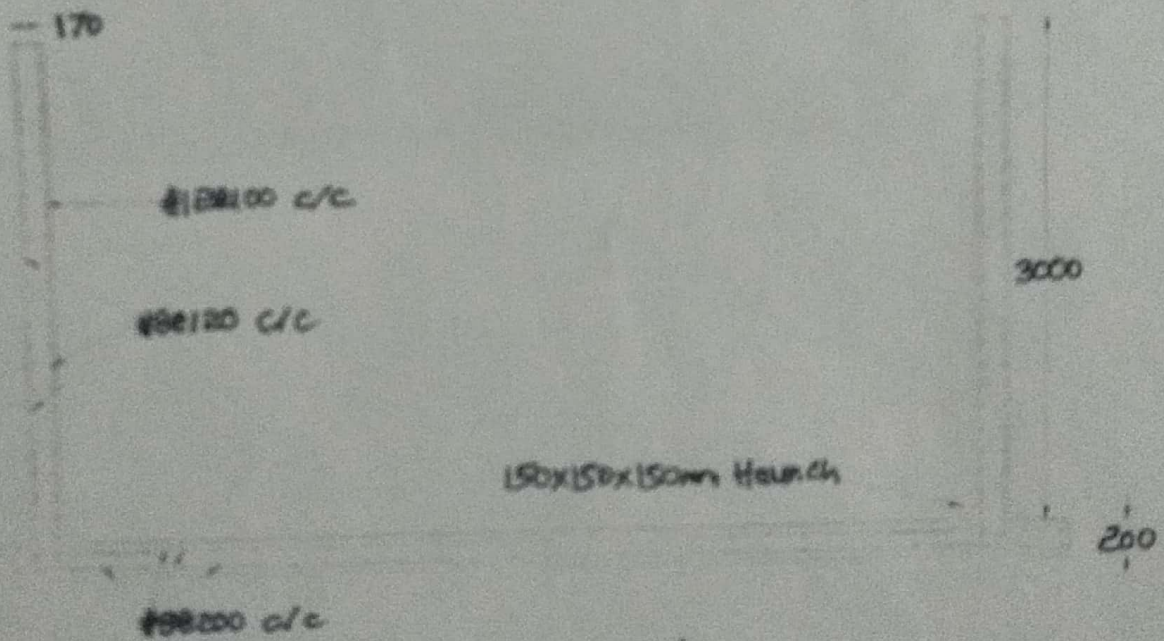 170
#12@100 c/c
3000
#8@120 c/c
150x150x150mm Haunch
200
#8@200 c/c